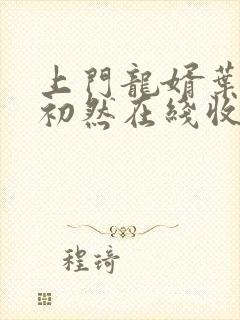 上門龍婿葉
初然在綫收
程琦